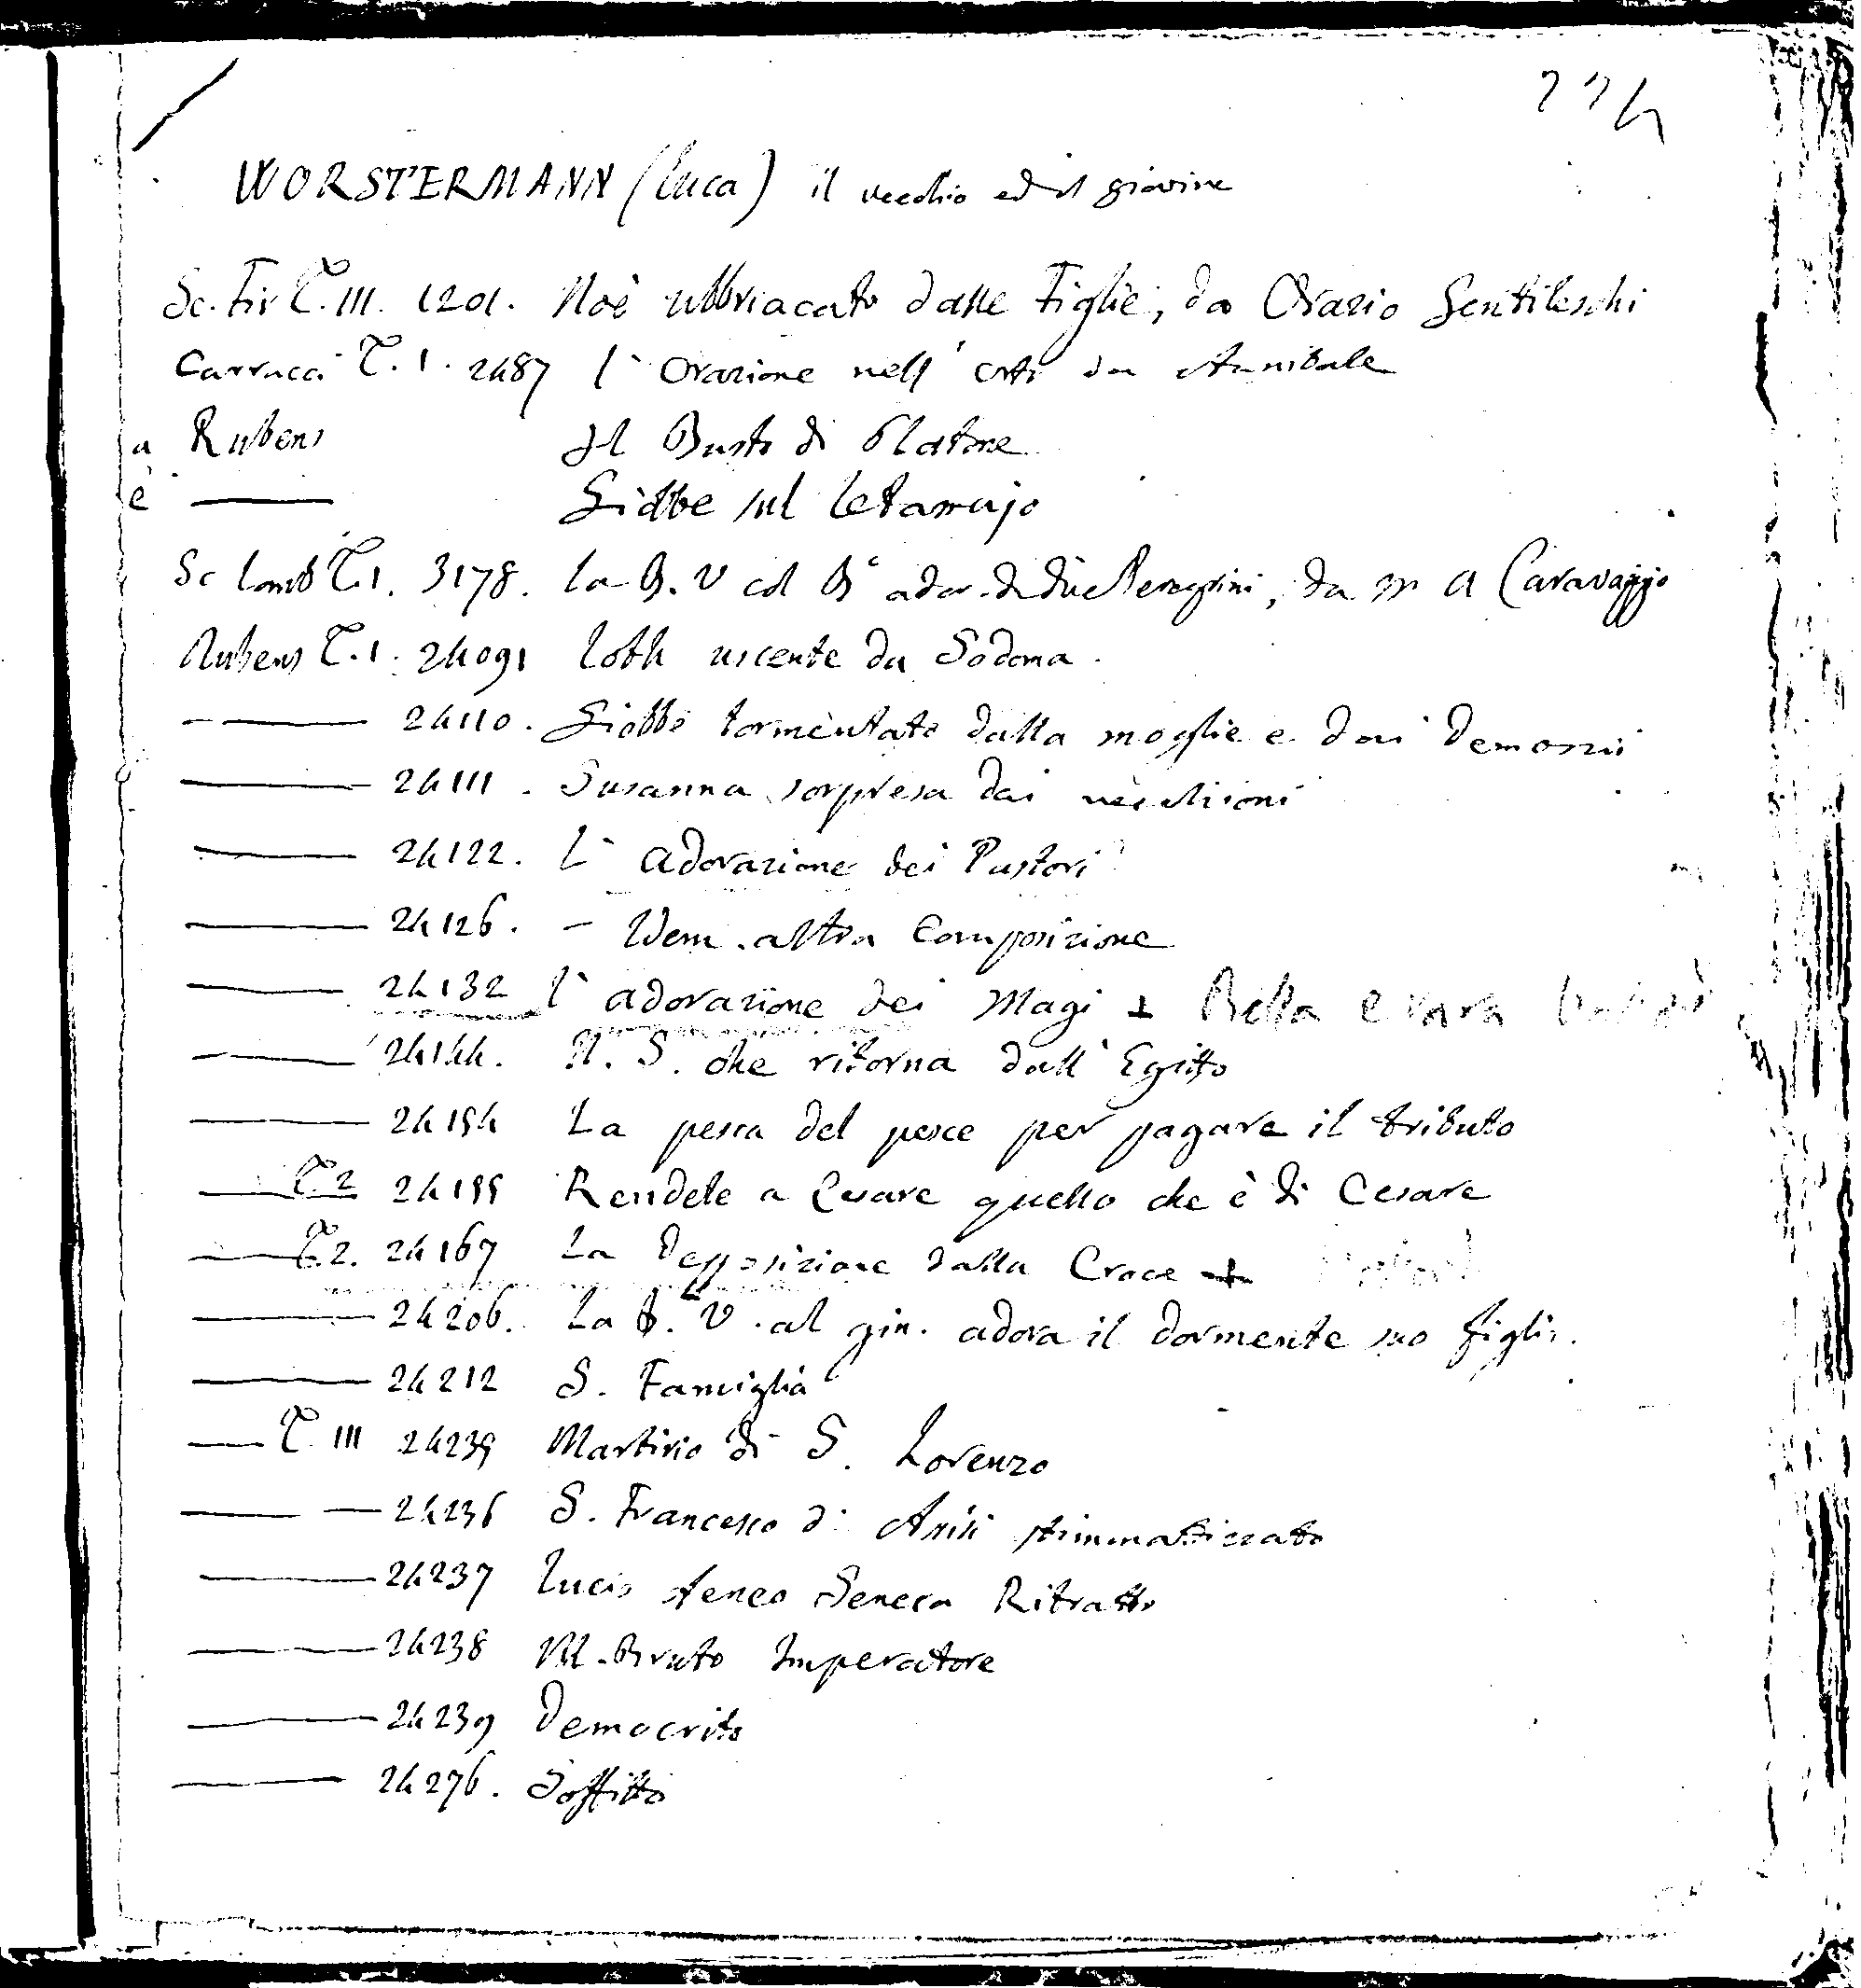 224
WORSTERMANN (Luca) il vecchio ed il giovine
Sc. Fir T. III. 1201. Noè ubbriacato dalle Figlie, da Orazio Gentileschi
Carracci T. 1. 2487 l'Orazione nell'orto da Annibale
a Rubens Il Busto di Platone
è —— Giobbe sul letamajo
Sc Lomb T. 1. 3178. La B. V col Bº ador. da due Peregrini, da M A Caravaggio
Rubens T. 1. 24091 Loth uscente da Sodoma.
—— 24110. Giobbe tormentato dalla moglie e dai Demonii
—— 24111. Susanna sorpresa dai vecchioni
—— 24122. L'adorazione dei Pastori
—— 24126. – Idem. altra Composizione
—— 24132 l'adorazione dei Magi + Bella e rara
—— 24144. N. S. che ritorna dall'Egitto
—— 24154 La pesca del pesce per pagare il tributo
—— T. 2 24155 Rendete a Cesare quello che è di Cesare
—— T. 2. 24167 La Deposizione dalla Croce +
—— 24206. La B. V. al gin. adora il dormente suo figlio.
—— 24212 S. Famiglia
—— T. III 24239 Martirio di S. Lorenzo
—— — 24236 S. Francesco di Asisi stimmatizzato
—— 24237 Lucio Aeneo Seneca Ritratto
—— 24238 M. Bruto Imperatore
—— 24239 Democrito
—— 24276. Soffitto